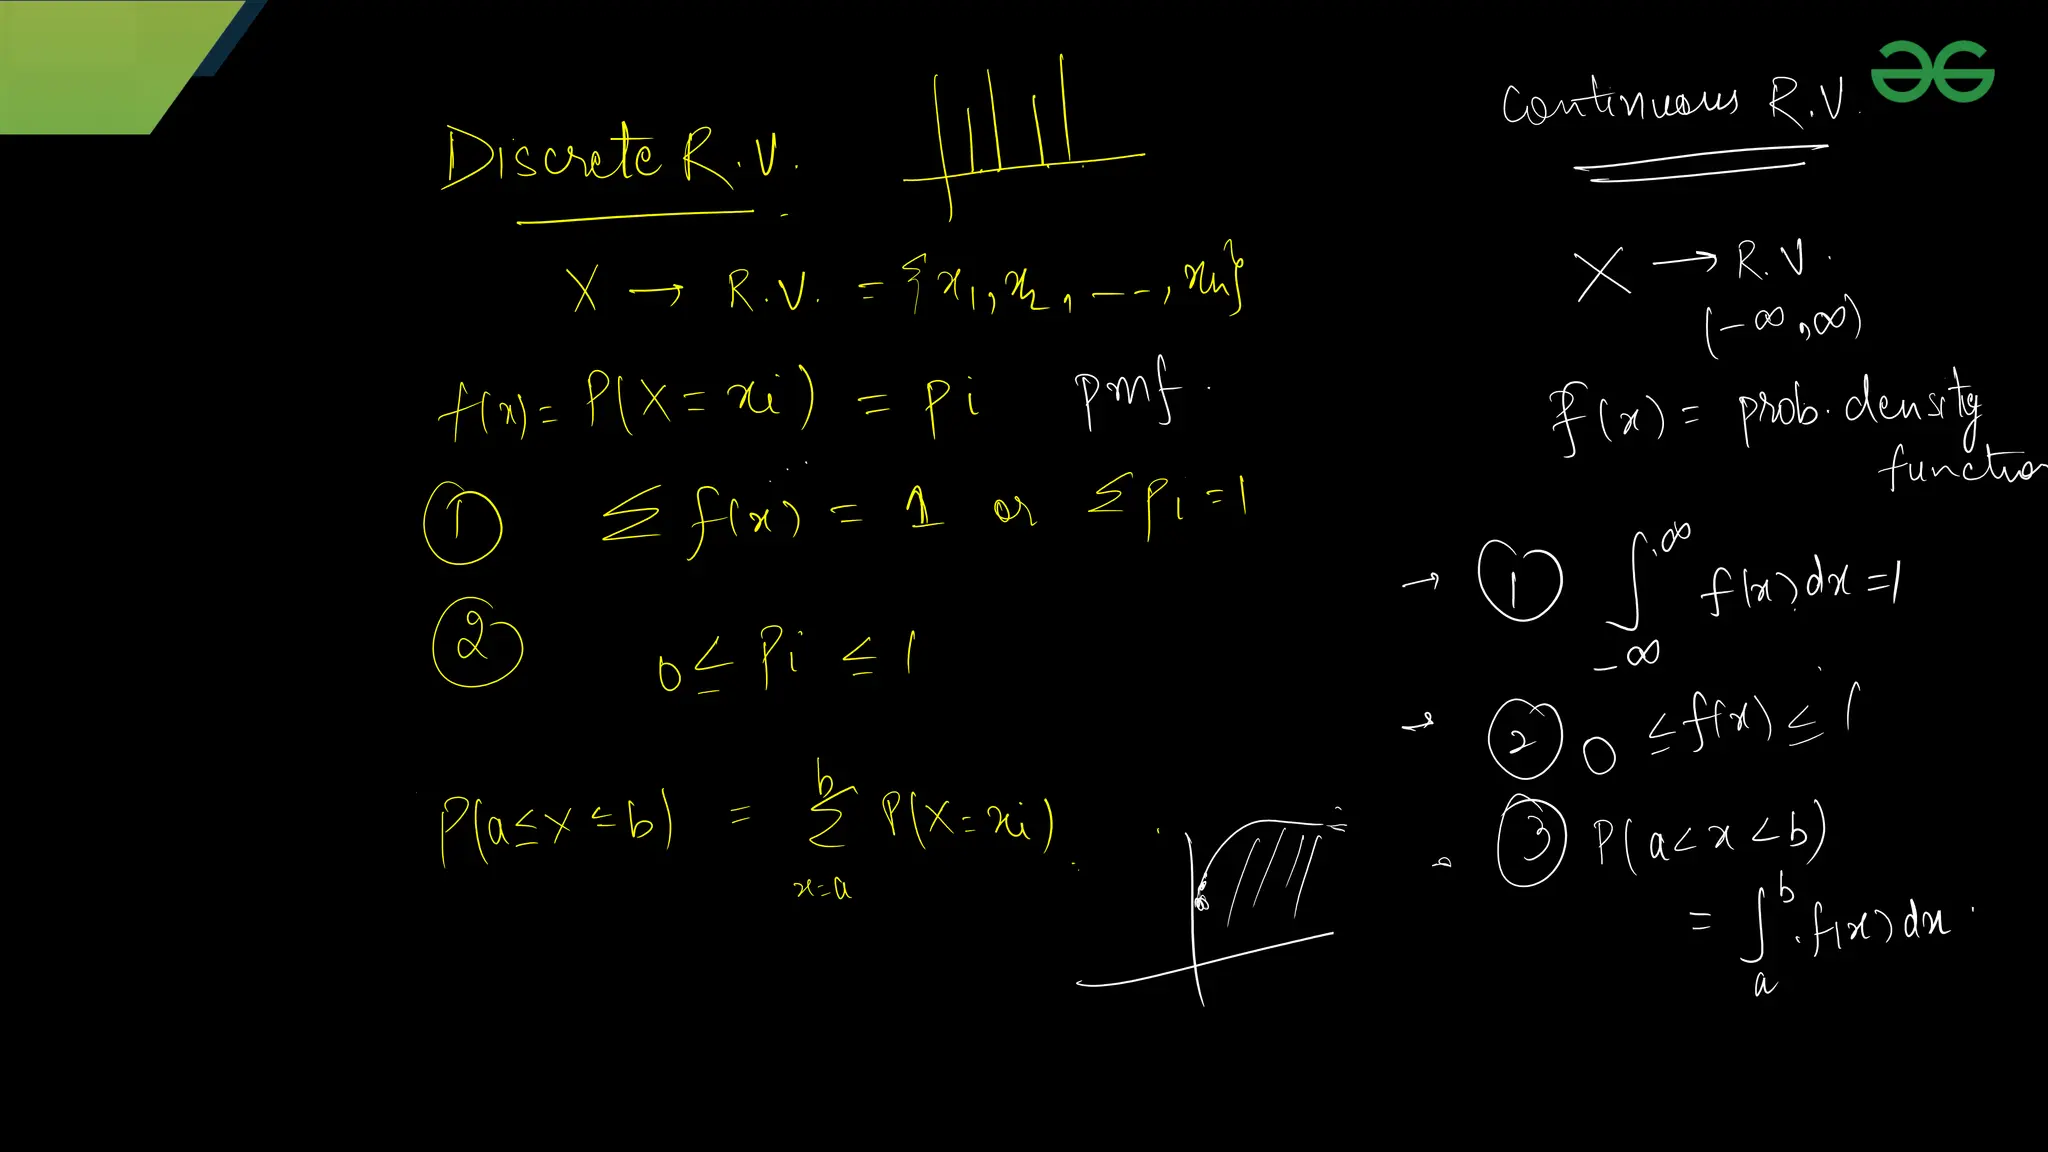 Discrete R.V.
X → R.V. = {x1, x2, ---, xn}
f(x) = P(X = xi) = pi pmf.
① Σ f(x) = 1 or Σ pi = 1
② 0 ≤ Pi ≤ 1
P(a ≤ X ≤ b) = b Σ x=a P(X = xi)
Continuous R.V.
X → R.V.
(-∞, ∞)
f(x) = prob. density
function
→ ① ∫ ∞ -∞ f(x) dx = 1
→ ② 0 ≤ f(x) ≤ 1
③ P(a < x < b)
= ∫ b a f(x) dx